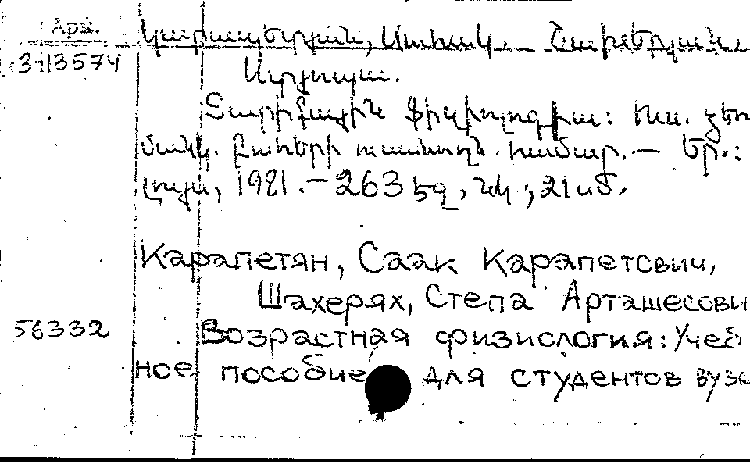 Арм.
Կարապետյան, Սահակ. Շախերյան
3113574
Արտաշ.
Տարիքային ֆիզիոլոգիա: Ուս. ձեռ
մանկ. բուհերի ուսանող. համար. — Եր.:
Լույս, 1981. — 263 էջ, նկ.; 21 սմ.
Карапетян, Саак Карапетович,
Шахерях, Степа Арташесови
56332
Возрастная физиология: Учеб
ное пособие для студентов вузо